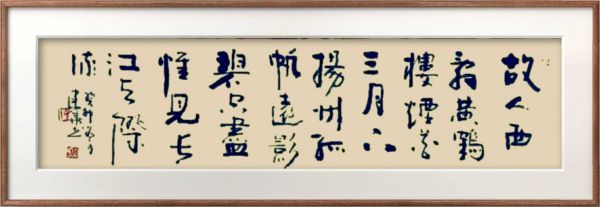 故人西
辞黄鶴
樓煙花
三月下
揚州孤
帆遠影
碧空盡
惟見长
江天際
流
癸卯